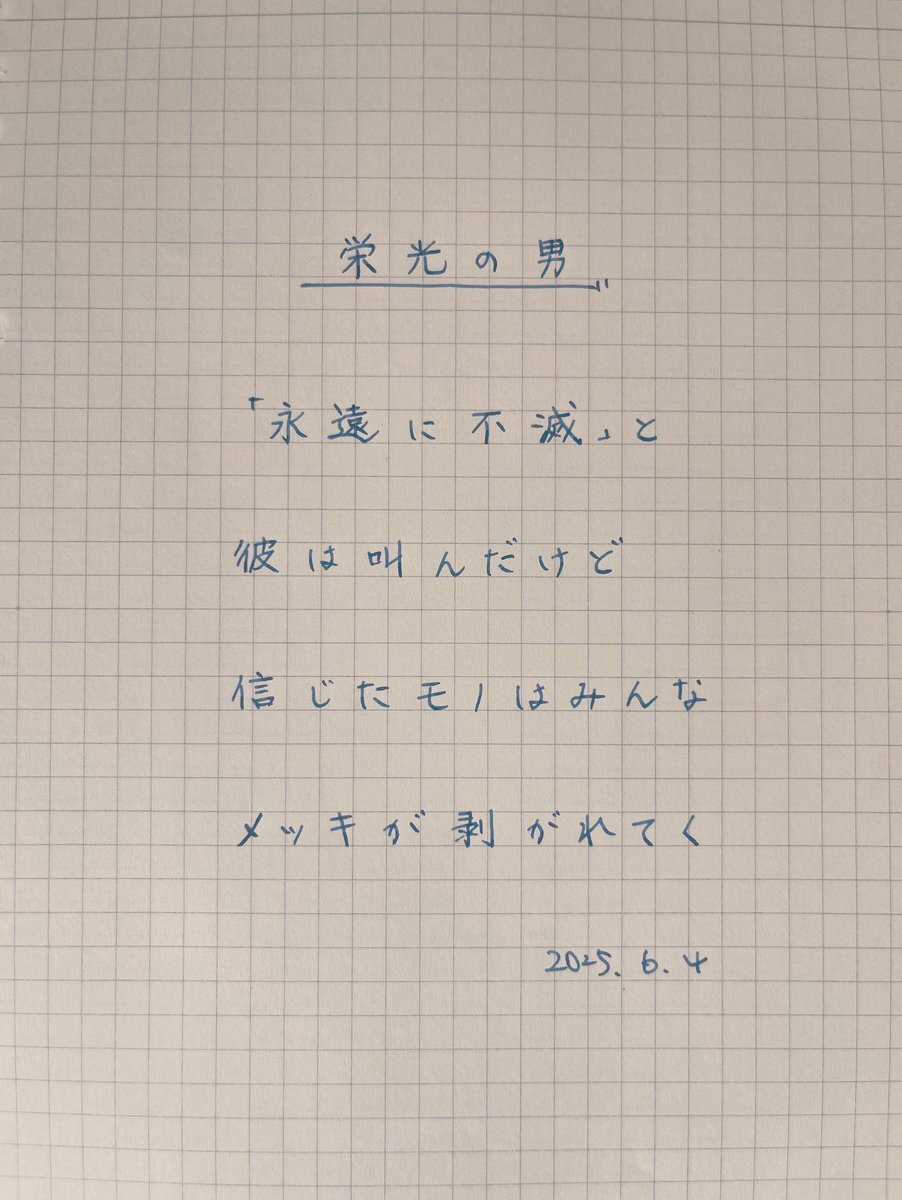 栄光の男
「永遠に不滅」と
彼は叫んだけど
信じたモノはみんな
メッキが剥がれてく
2025.6.4